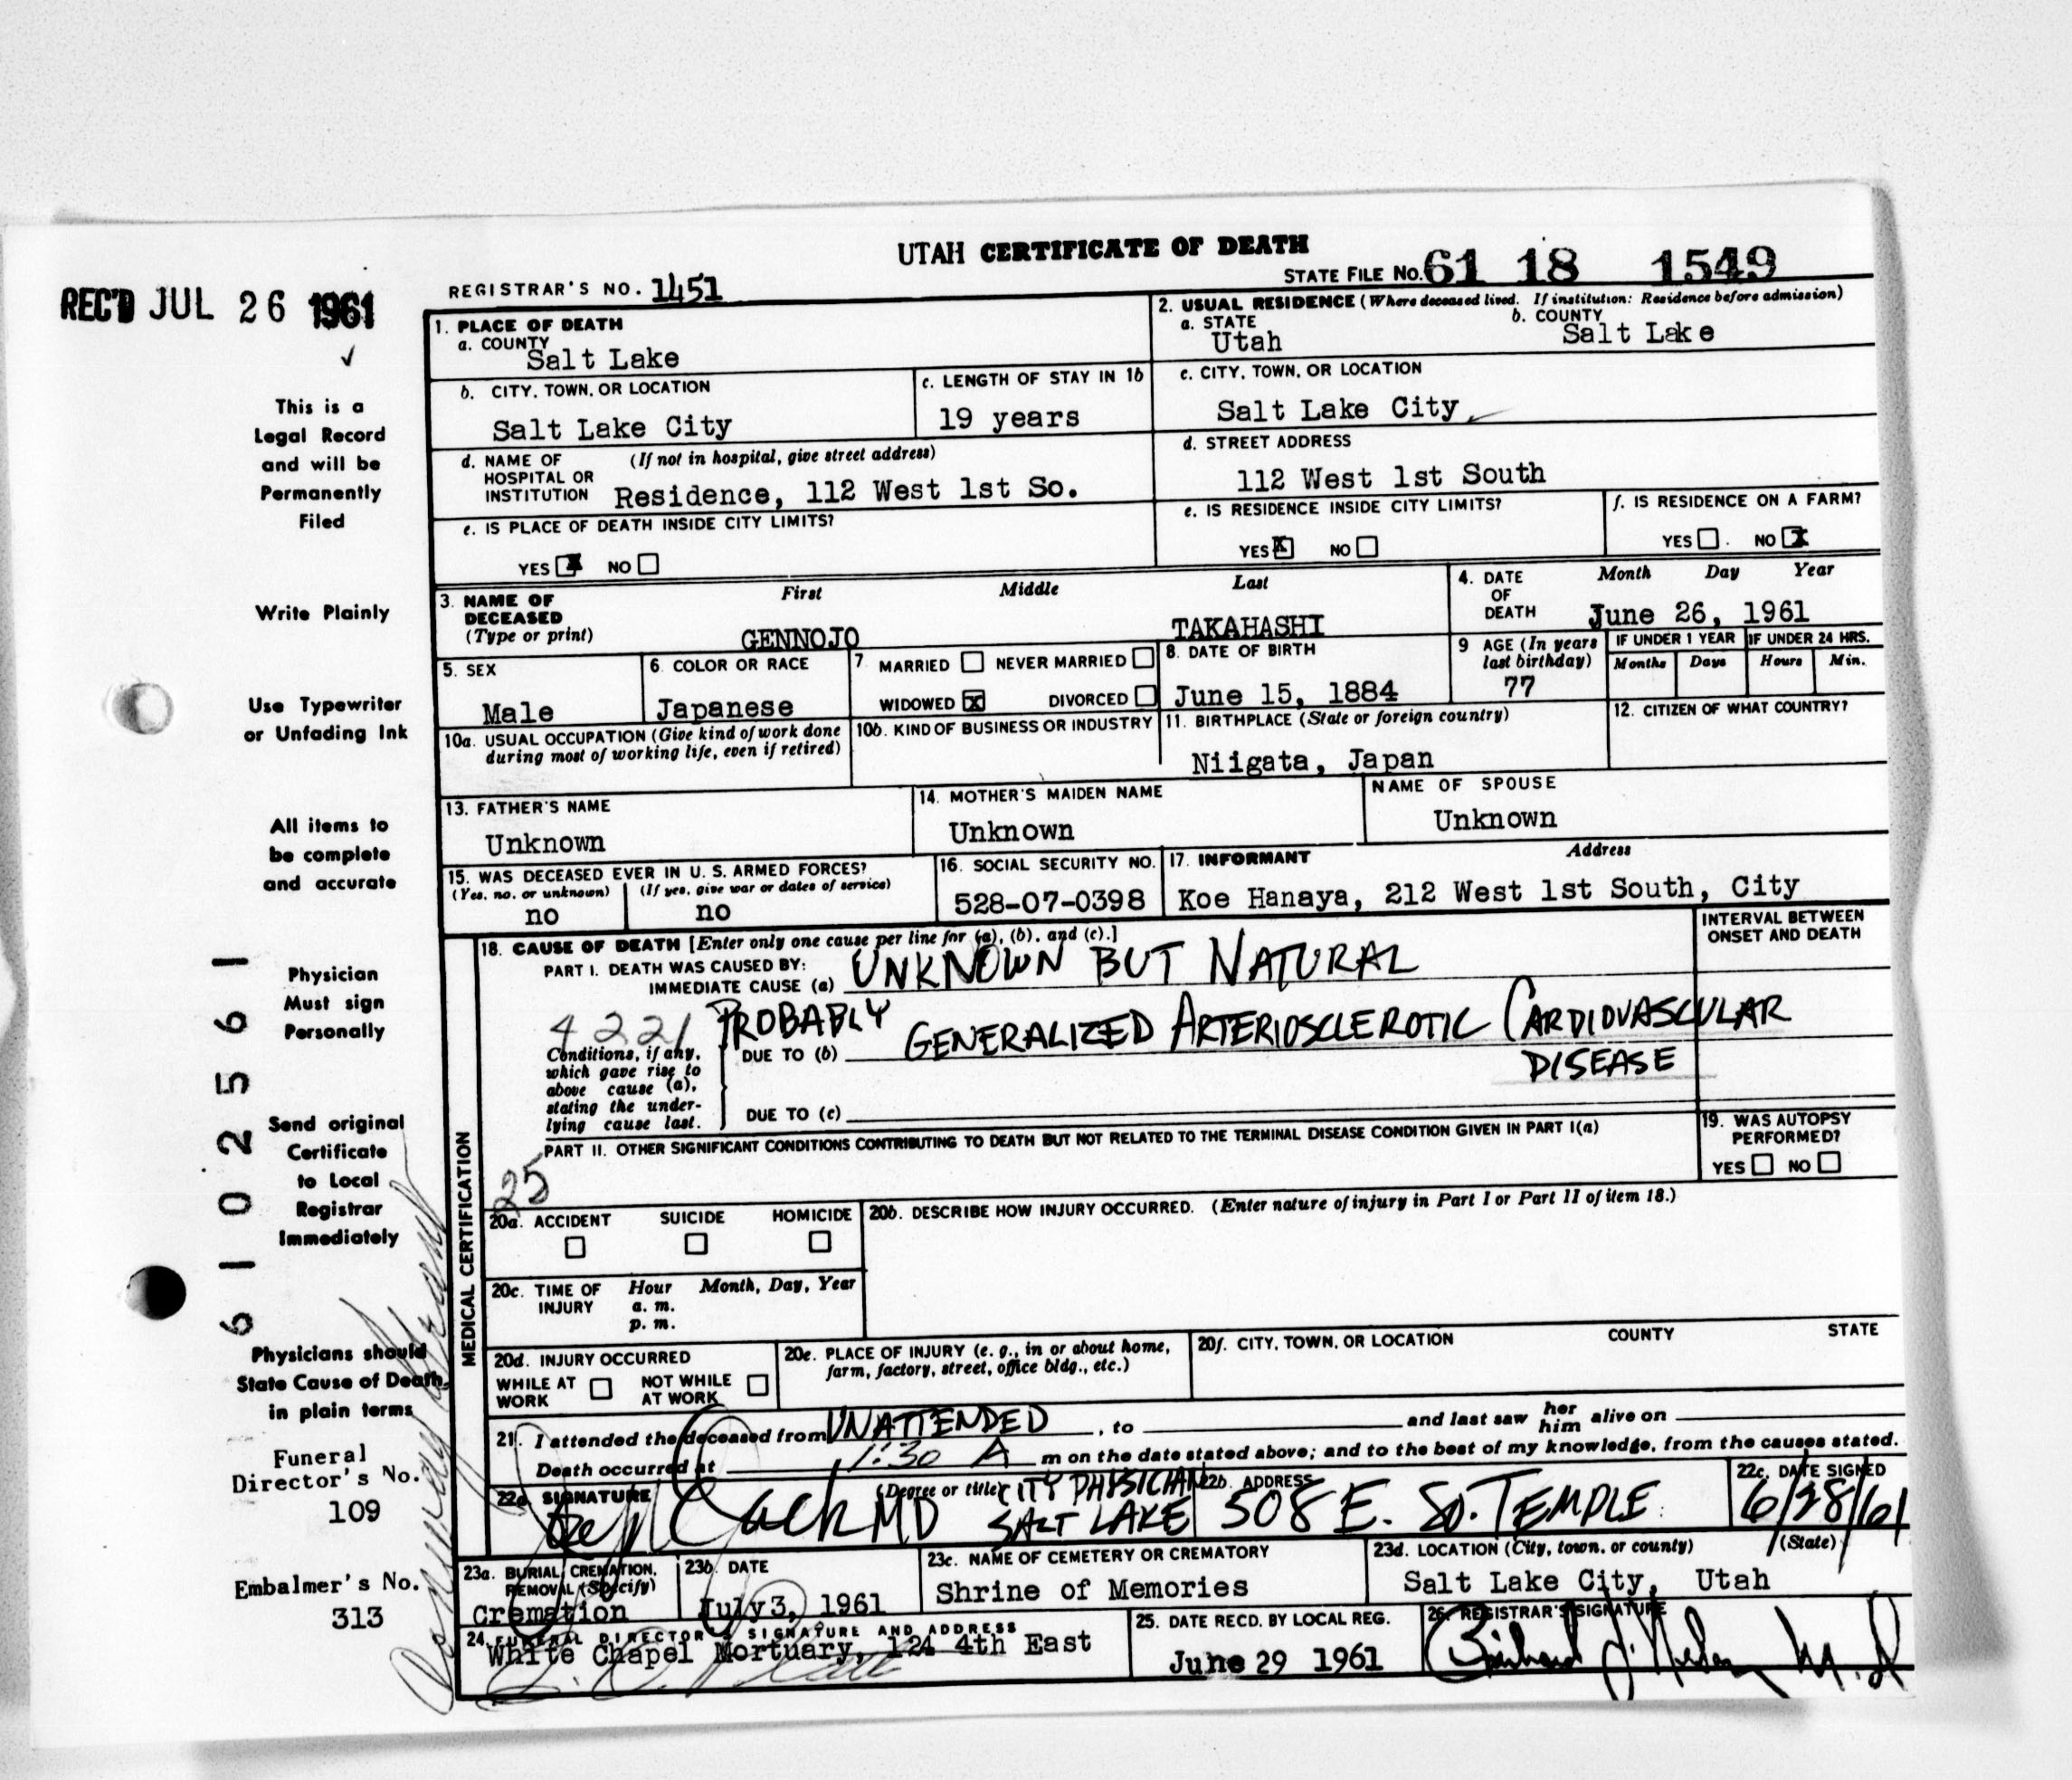 UTAH CERTIFICATE OF DEATH
REC'D JUL 26 1961
REGISTRAR'S NO. 1451
STATE FILE NO. 61 18 1549
1. PLACE OF DEATH
a. COUNTY
Salt Lake
2. USUAL RESIDENCE (Where deceased lived. If institution: Residence before admission)
a. STATE
Utah
b. COUNTY
Salt Lake
b. CITY, TOWN, OR LOCATION
Salt Lake City
c. LENGTH OF STAY IN 1b
19 years
c. CITY, TOWN, OR LOCATION
Salt Lake City
d. NAME OF HOSPITAL OR INSTITUTION
(If not in hospital, give street address)
Residence, 112 West 1st So.
d. STREET ADDRESS
112 West 1st South
e. IS PLACE OF DEATH INSIDE CITY LIMITS?
YES X NO
e. IS RESIDENCE INSIDE CITY LIMITS?
YES X NO
f. IS RESIDENCE ON A FARM?
YES NO X
3. NAME OF DECEASED
(Type or print)
First Middle Last
GENNOJO TAKAHASHI
4. DATE OF DEATH
Month Day Year
June 26, 1961
5. SEX
Male
6. COLOR OR RACE
Japanese
7. MARRIED NEVER MARRIED
WIDOWED X DIVORCED
8. DATE OF BIRTH
June 15, 1884
9 AGE (In years last birthday)
77
IF UNDER 1 YEAR
Months Days
IF UNDER 24 HRS.
Hours Min.
10a. USUAL OCCUPATION (Give kind of work done during most of working life, even if retired)
10b. KIND OF BUSINESS OR INDUSTRY
11. BIRTHPLACE (State or foreign country)
Niigata, Japan
12. CITIZEN OF WHAT COUNTRY?
13. FATHER'S NAME
Unknown
14. MOTHER'S MAIDEN NAME
Unknown
NAME OF SPOUSE
Unknown
15. WAS DECEASED EVER IN U. S. ARMED FORCES?
(Yes, no, or unknown) (If yes, give war or dates of service)
no no
16. SOCIAL SECURITY NO.
528-07-0398
17. INFORMANT Address
Koe Hanaya, 212 West 1st South, City
MEDICAL CERTIFICATION
18. CAUSE OF DEATH [Enter only one cause per line for (a), (b), and (c).]
INTERVAL BETWEEN ONSET AND DEATH
PART I. DEATH WAS CAUSED BY:
IMMEDIATE CAUSE (a) UNKNOWN BUT NATURAL
4221 PROBABLY
Conditions, if any, which gave rise to above cause (a), stating the underlying cause last.
DUE TO (b) GENERALIZED ARTERIOSCLEROTIC CARDIOVASCULAR
DISEASE
DUE TO (c)
PART II. OTHER SIGNIFICANT CONDITIONS CONTRIBUTING TO DEATH BUT NOT RELATED TO THE TERMINAL DISEASE CONDITION GIVEN IN PART I(a)
25
19. WAS AUTOPSY PERFORMED?
YES NO
20a. ACCIDENT SUICIDE HOMICIDE
20b. DESCRIBE HOW INJURY OCCURRED. (Enter nature of injury in Part I or Part II of item 18.)
20c. TIME OF INJURY
Hour Month, Day, Year
a. m.
p. m.
20d. INJURY OCCURRED
WHILE AT WORK NOT WHILE AT WORK
20e. PLACE OF INJURY (e. g., in or about home, farm, factory, street, office bldg., etc.)
20f. CITY, TOWN, OR LOCATION COUNTY STATE
21. I attended the deceased from UNATTENDED, to and last saw her him alive on
Death occurred at 1:30 A m on the date stated above; and to the best of my knowledge, from the causes stated.
22a. SIGNATURE (Degree or title)
MD CITY PHYSICIAN
SALT LAKE
22b. ADDRESS
508 E. SO. TEMPLE
22c. DATE SIGNED
6/28/61
23a. BURIAL, CREMATION, REMOVAL (Specify)
Cremation
23b. DATE
July 3, 1961
23c. NAME OF CEMETERY OR CREMATORY
Shrine of Memories
23d. LOCATION (City, town, or county) (State)
Salt Lake City, Utah
24. FUNERAL DIRECTOR'S SIGNATURE AND ADDRESS
White Chapel Mortuary, 124 4th East
25. DATE RECD. BY LOCAL REG.
June 29 1961
26. REGISTRAR'S SIGNATURE
This is a
Legal Record
and will be
Permanently
Filed
Write Plainly
Use Typewriter
or Unfading Ink
All items to
be complete
and accurate
Physician
Must sign
Personally
Send original
Certificate
to Local
Registrar
Immediately
Physicians should
State Cause of Death
in plain terms
Funeral
Director's No.
109
Embalmer's No.
313
61025561